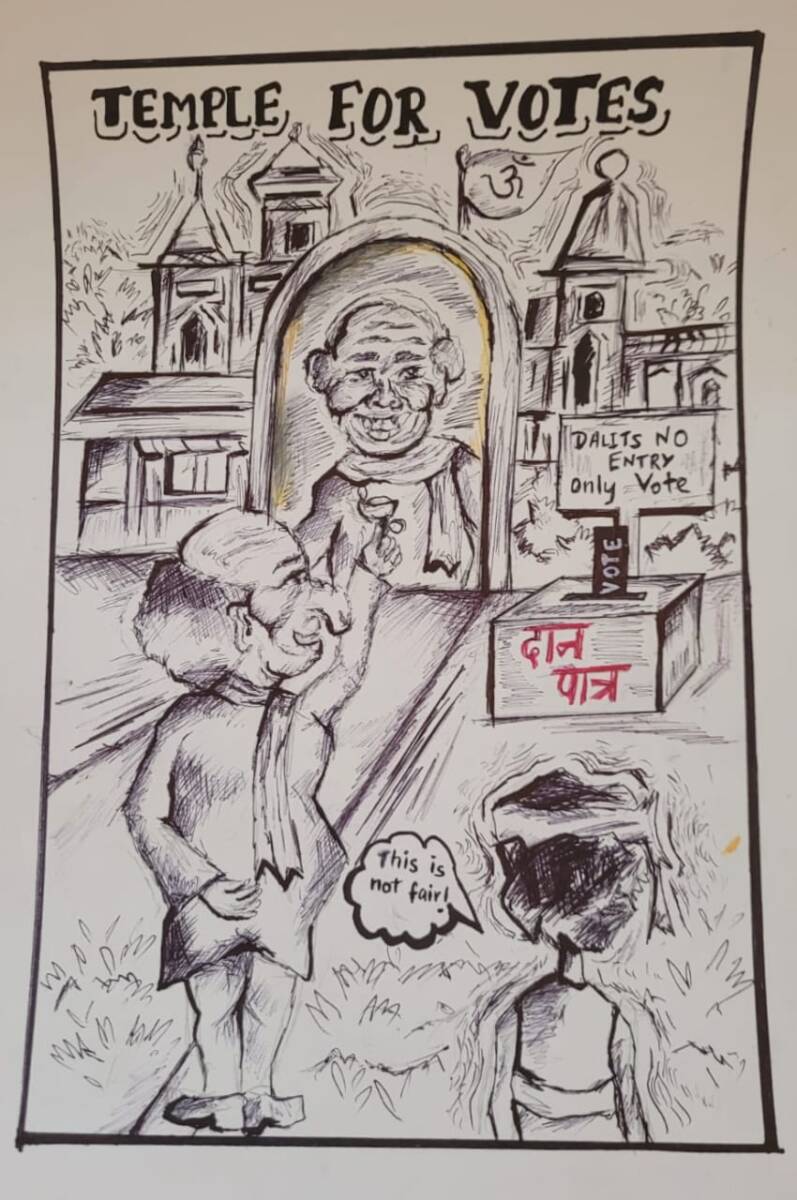 TEMPLE FOR VOTES
ॐ
DALITS NO
ENTRY
only Vote
VOTE
दान
पात्र
This is
not fair!